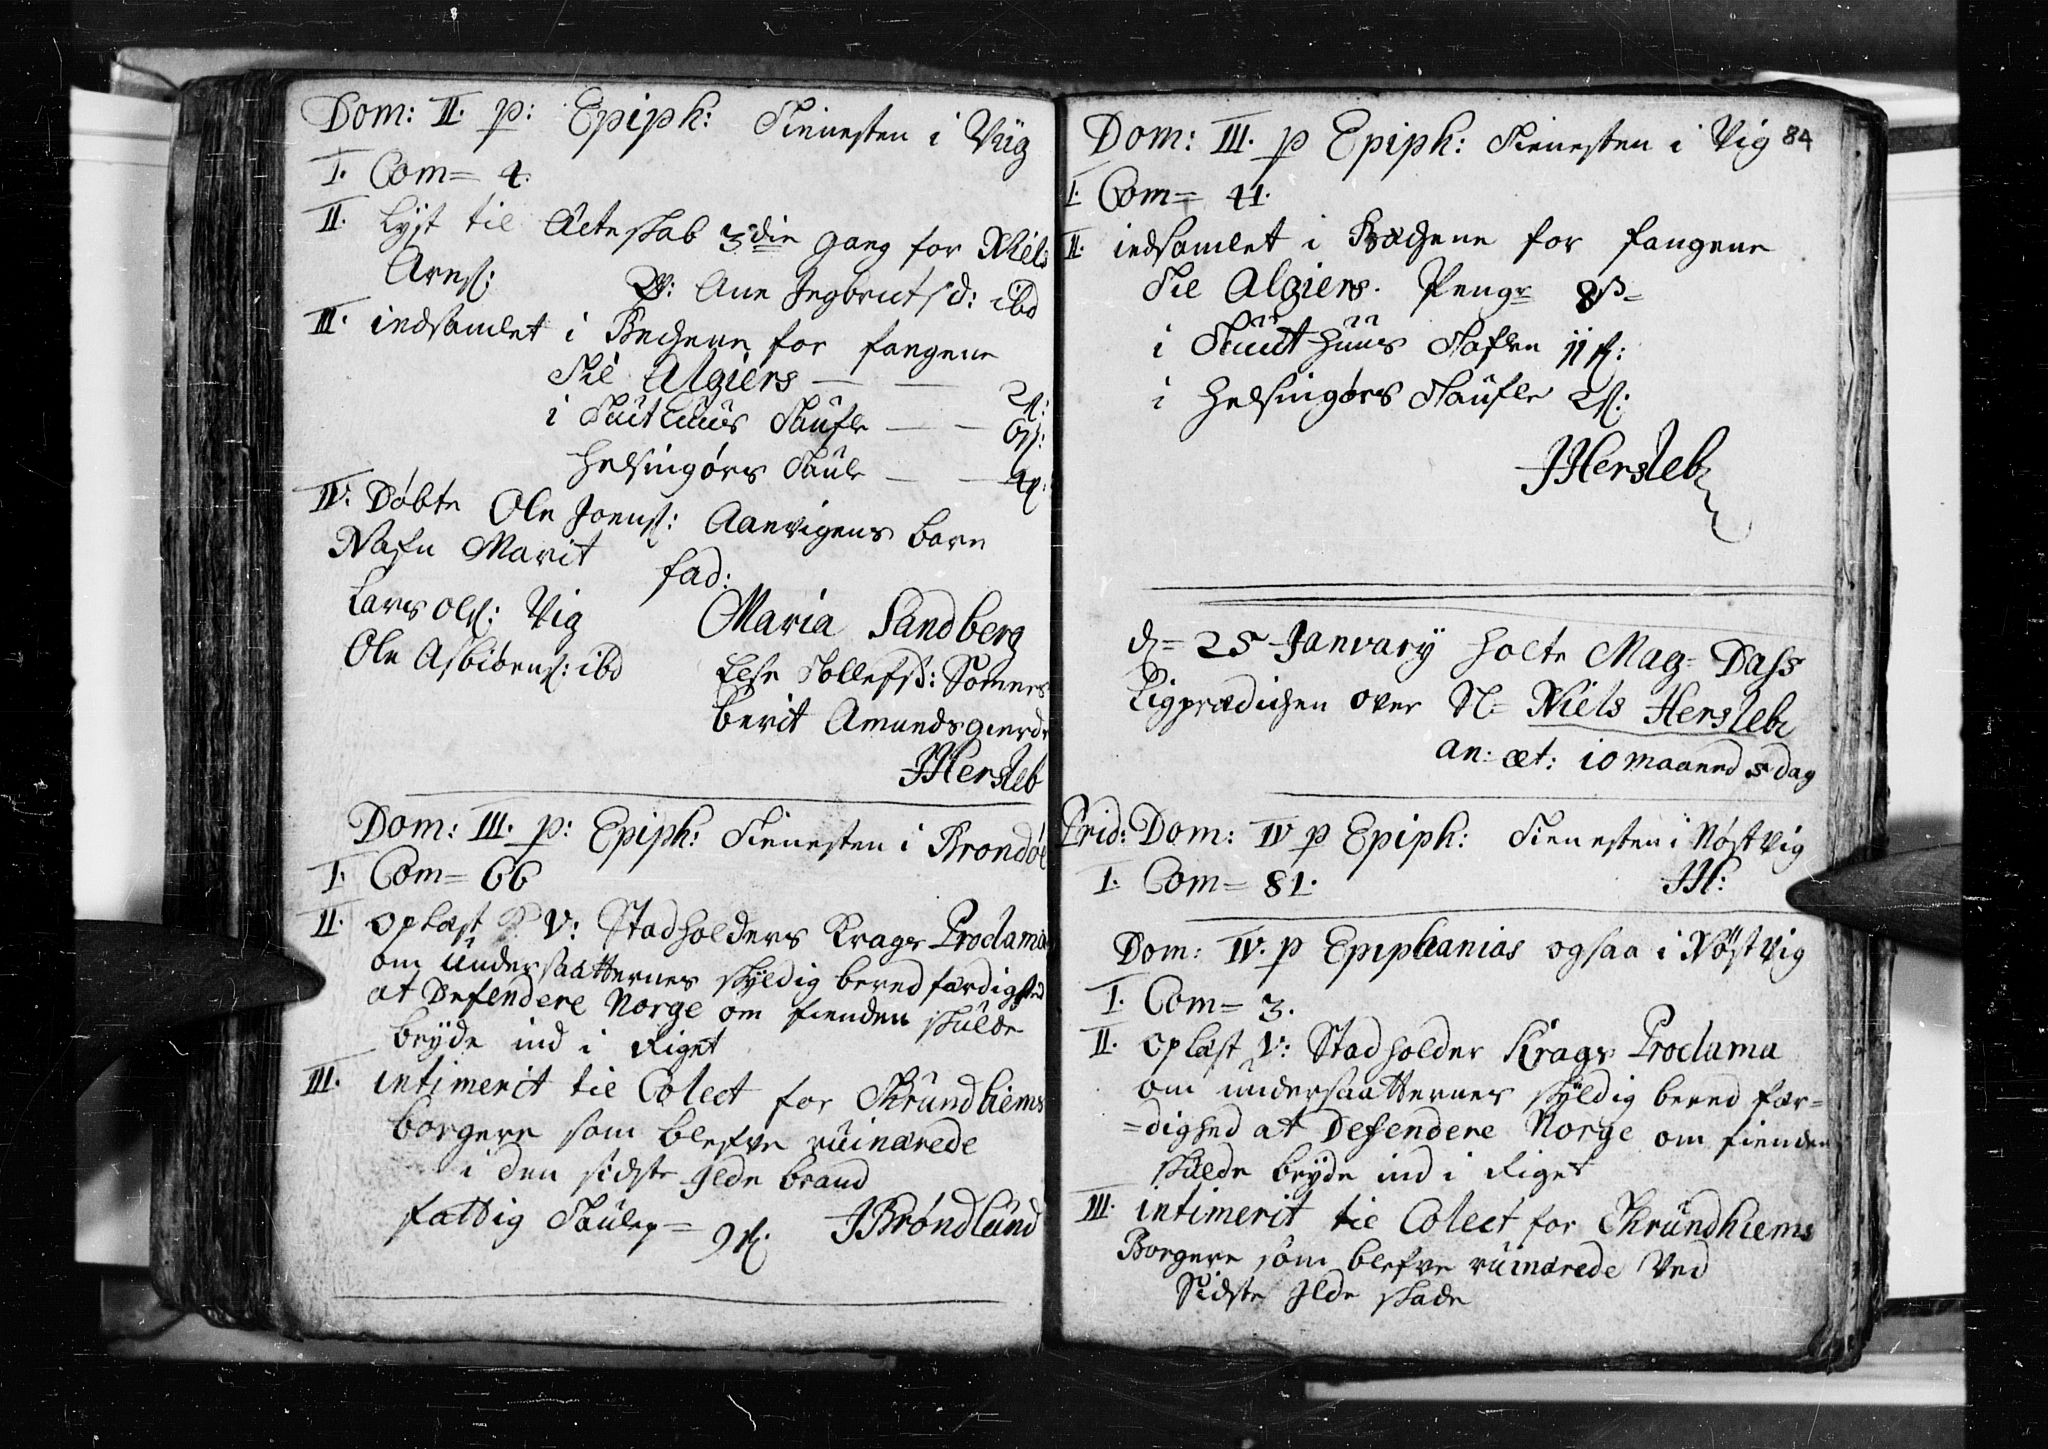 Dom: II. p: Epiph: Tienesten i Viig
I. Com= 4.
II. Lyst til Ächteskab 3die gang for Niels
Arnß: Ane Ingbrutsd: ibd
III. indsamlet i Becknene for fangene
Til Algiers — —
i Tuchthuus Taufle — —
Helsingörs Taule — —
IV: Döbte Ole Joenß: Aanvigens barn
Nafn Marit fad:
Lars Olß: Vig Maria Sandberg
Ole Asbiörnß: ibd Else Tollefsd: Sömnes
berit Amundsgierde
JHersleb
Dom: III. p: Epiph: Tienesten i Bronöe
I. Com= 66
II. oplæst V: Stadholders Krags Proclama
om undersaatternes skyldig bered færdighed
at Defendere Norge om fienden skulde
bryde ind i Riget
III. intimerit til Colect for Thrundhiems
borgere som blefve ruinærede
i den sidste Ilde brand
fattig Taulen= 9ß. JBröndlund
Dom: III. p Epiph: Tienesten i Vig 84
I. Com= 41.
II. indsamlet i Becknene for fangene
Til Algiers. Penge 8ß=
i Tuut huus Taflen 11ß:
i Helsingörs Taufle 2ß:
JHersleb
d= 25 January holte Mag= Dass
Ligprædicken over S= Niels Hersleb
an: æt: 10 maaned 5 dag
Prid: Dom: IV p Epiph: Tienesten i Nöstvig
I. Com= 81. JH:
Dom: IV. p Epiphanias ogsaa i Nöstvig
I. Com= 3.
II. oplæst V: Stadholder Krags Proclama
om undersaatternes skyldig bered fær=
=dighed at Defendere Norge om fienden
skulde bryde ind i Riget
III. intimerit til Colect for Thrundhiems
Borgere som blefve ruinærede ved
Sidste Ilde skade